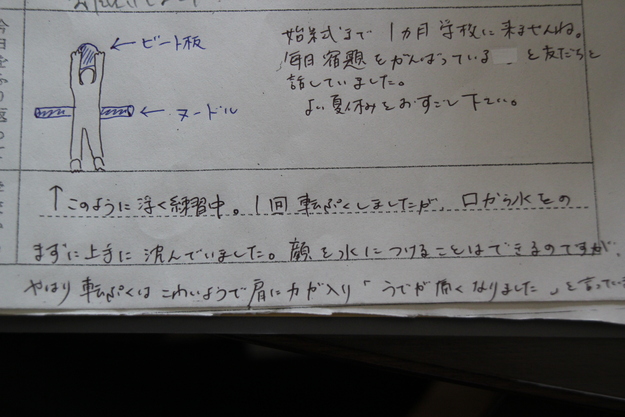 始業式まで1カ月学校に来ませんね。
毎日宿題をがんばっている と友だちと
話していました。
よい夏休みをおすごし下さい。
← ビート板
← ヌードル
↑このように浮く練習中。1回転ぷくしましたが、口から水をの
まずに上手に沈んでいました。顔を水につけることはできるのですが、
やはり転ぷくはこわいようで肩に力が入り「うでが痛くなりました」と言ってい